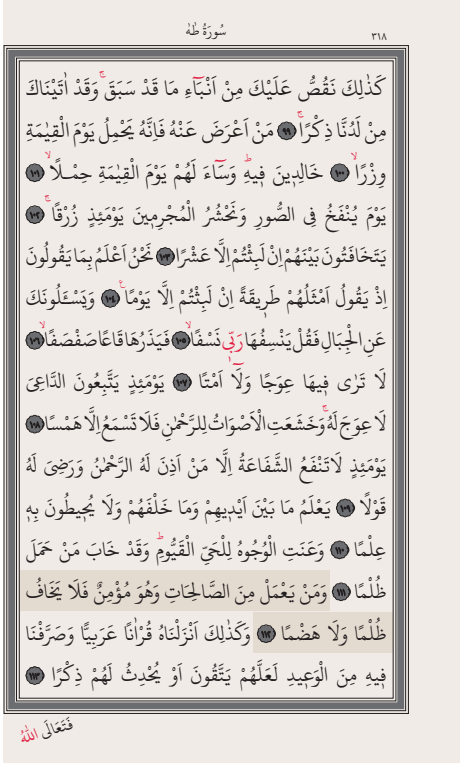 سُورَةُ طٰهٰ
٣١٨
كَذٰلِكَ نَقُصُّ عَلَيْكَ مِنْ اَنْبَٓاءِ مَا قَدْ سَبَقَۚ وَقَدْ اٰتَيْنَاكَ
مِنْ لَدُنَّا ذِكْرًاۚ ﴿٩٩﴾ مَنْ اَعْرَضَ عَنْهُ فَاِنَّهُ يَحْمِلُ يَوْمَ الْقِيٰمَةِ
وِزْرًاۙ ﴿١٠٠﴾ خَالِدٖينَ فٖيهِؕ وَسَٓاءَ لَهُمْ يَوْمَ الْقِيٰمَةِ حِمْلًاۙ ﴿١٠١﴾
يَوْمَ يُنْفَخُ فِى الصُّورِ وَنَحْشُرُ الْمُجْرِمٖينَ يَوْمَئِذٍ زُرْقًاۚ ﴿١٠٢﴾
يَتَخَافَتُونَ بَيْنَهُمْ اِنْ لَبِثْتُمْ اِلَّا عَشْرًا ﴿١٠٣﴾ نَحْنُ اَعْلَمُ بِمَا يَقُولُونَ
اِذْ يَقُولُ اَمْثَلُهُمْ طَرٖيقَةً اِنْ لَبِثْتُمْ اِلَّا يَوْمًاۚ ﴿١٠٤﴾ وَيَسْـَٔلُونَكَ
عَنِ الْجِبَالِ فَقُلْ يَنْسِفُهَا رَبّٖى نَسْفًاۙ ﴿١٠٥﴾ فَيَذَرُهَا قَاعًا صَفْصَفًاۙ ﴿١٠٦﴾
لَا تَرٰى فٖيهَا عِوَجًا وَلَٓا اَمْتًا ﴿١٠٧﴾ يَوْمَئِذٍ يَتَّبِعُونَ الدَّاعِىَ
لَا عِوَجَ لَهُۚ وَخَشَعَتِ الْاَصْوَاتُ لِلرَّحْمٰنِ فَلَا تَسْمَعُ اِلَّا هَمْسًا ﴿١٠٨﴾
يَوْمَئِذٍ لَا تَنْفَعُ الشَّفَاعَةُ اِلَّا مَنْ اَذِنَ لَهُ الرَّحْمٰنُ وَرَضِىَ لَهُ
قَوْلًا ﴿١٠٩﴾ يَعْلَمُ مَا بَيْنَ اَيْدٖيهِمْ وَمَا خَلْفَهُمْ وَلَا يُحٖيطُونَ بِهٖ
عِلْمًا ﴿١١٠﴾ وَعَنَتِ الْوُجُوهُ لِلْحَىِّ الْقَيُّومِؕ وَقَدْ خَابَ مَنْ حَمَلَ
ظُلْمًا ﴿١١١﴾ وَمَنْ يَعْمَلْ مِنَ الصَّالِحَاتِ وَهُوَ مُؤْمِنٌ فَلَا يَخَافُ
ظُلْمًا وَلَا هَضْمًا ﴿١١٢﴾ وَكَذٰلِكَ اَنْزَلْنَاهُ قُرْاٰنًا عَرَبِيًّا وَصَرَّفْنَا
فٖيهِ مِنَ الْوَعٖيدِ لَعَلَّهُمْ يَتَّقُونَ اَوْ يُحْدِثُ لَهُمْ ذِكْرًا ﴿١١٣﴾
فَتَعَالَى اللّٰهُ